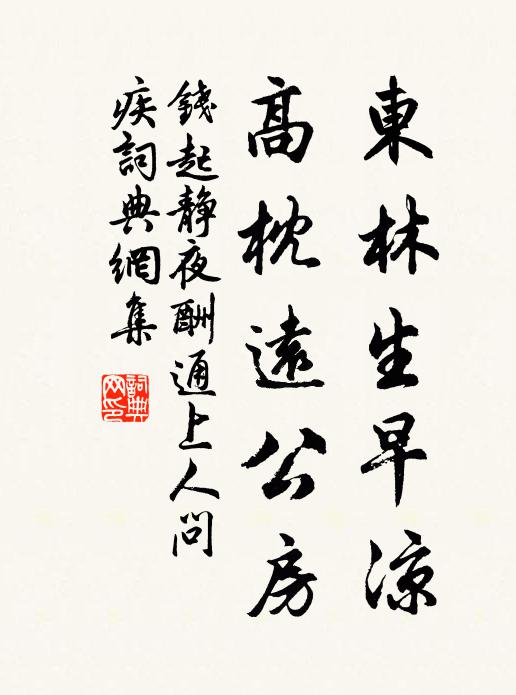 東林生早涼
高枕遠公房
錢起靜夜酬通上人問
疾詞典網集
詞典网印